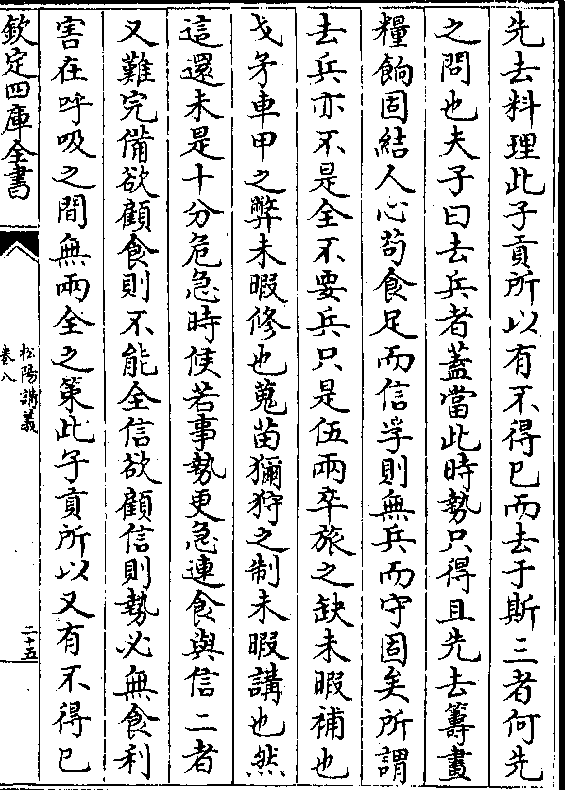 先去料理此子貢所以有不得已而去于斯三者何先
之問也夫子曰去兵者蓋當此時勢只得且先去籌畫
糧餉固結人心苟食足而信孚則無兵而守固矣所謂
去兵亦不是全不要兵只是伍兩卒旅之缺未暇補也
戈矛車甲之弊未暇修也蒐苗獮狩之制未暇講也然
這還未是十分危急時候若事勢更急連食與信二者
又難完備欲顧食則不能全信欲顧信則勢必無食利
害在呼吸之間無兩全之策此子貢所以又有不得已
欽定四庫全書
松陽講義
卷八
二十五